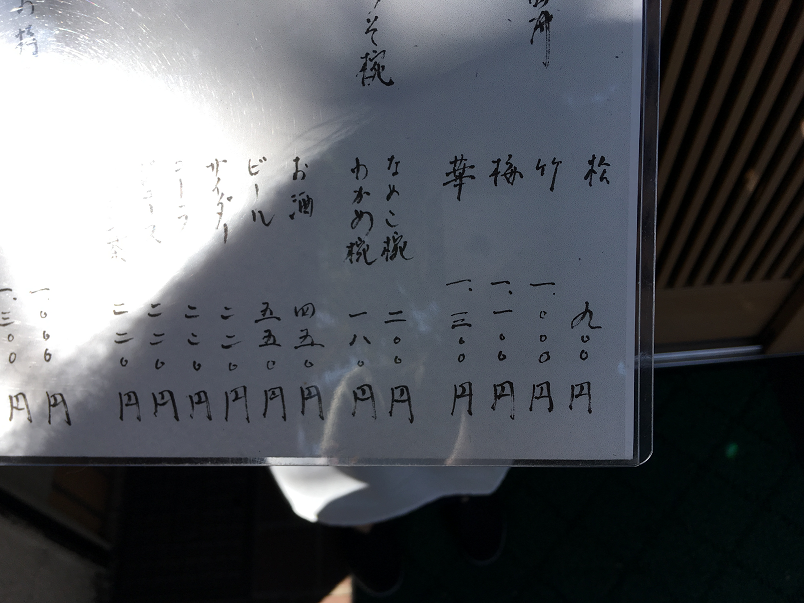 松 九〇〇円
竹 一、〇〇〇円
梅 一、一〇〇円
華 一、三〇〇円
そ椀
なめこ椀 二〇〇円
わかめ椀 一八〇円
お酒 四五〇円
ビール 五五〇円
サイダー 二二〇円
コーラ 二二〇円
ジュース 二二〇円
二二〇円
一、〇〇〇円
一、三〇〇円